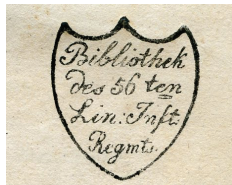 Bibliothek
des 56 ten
Lin: Inft.
Regmts.